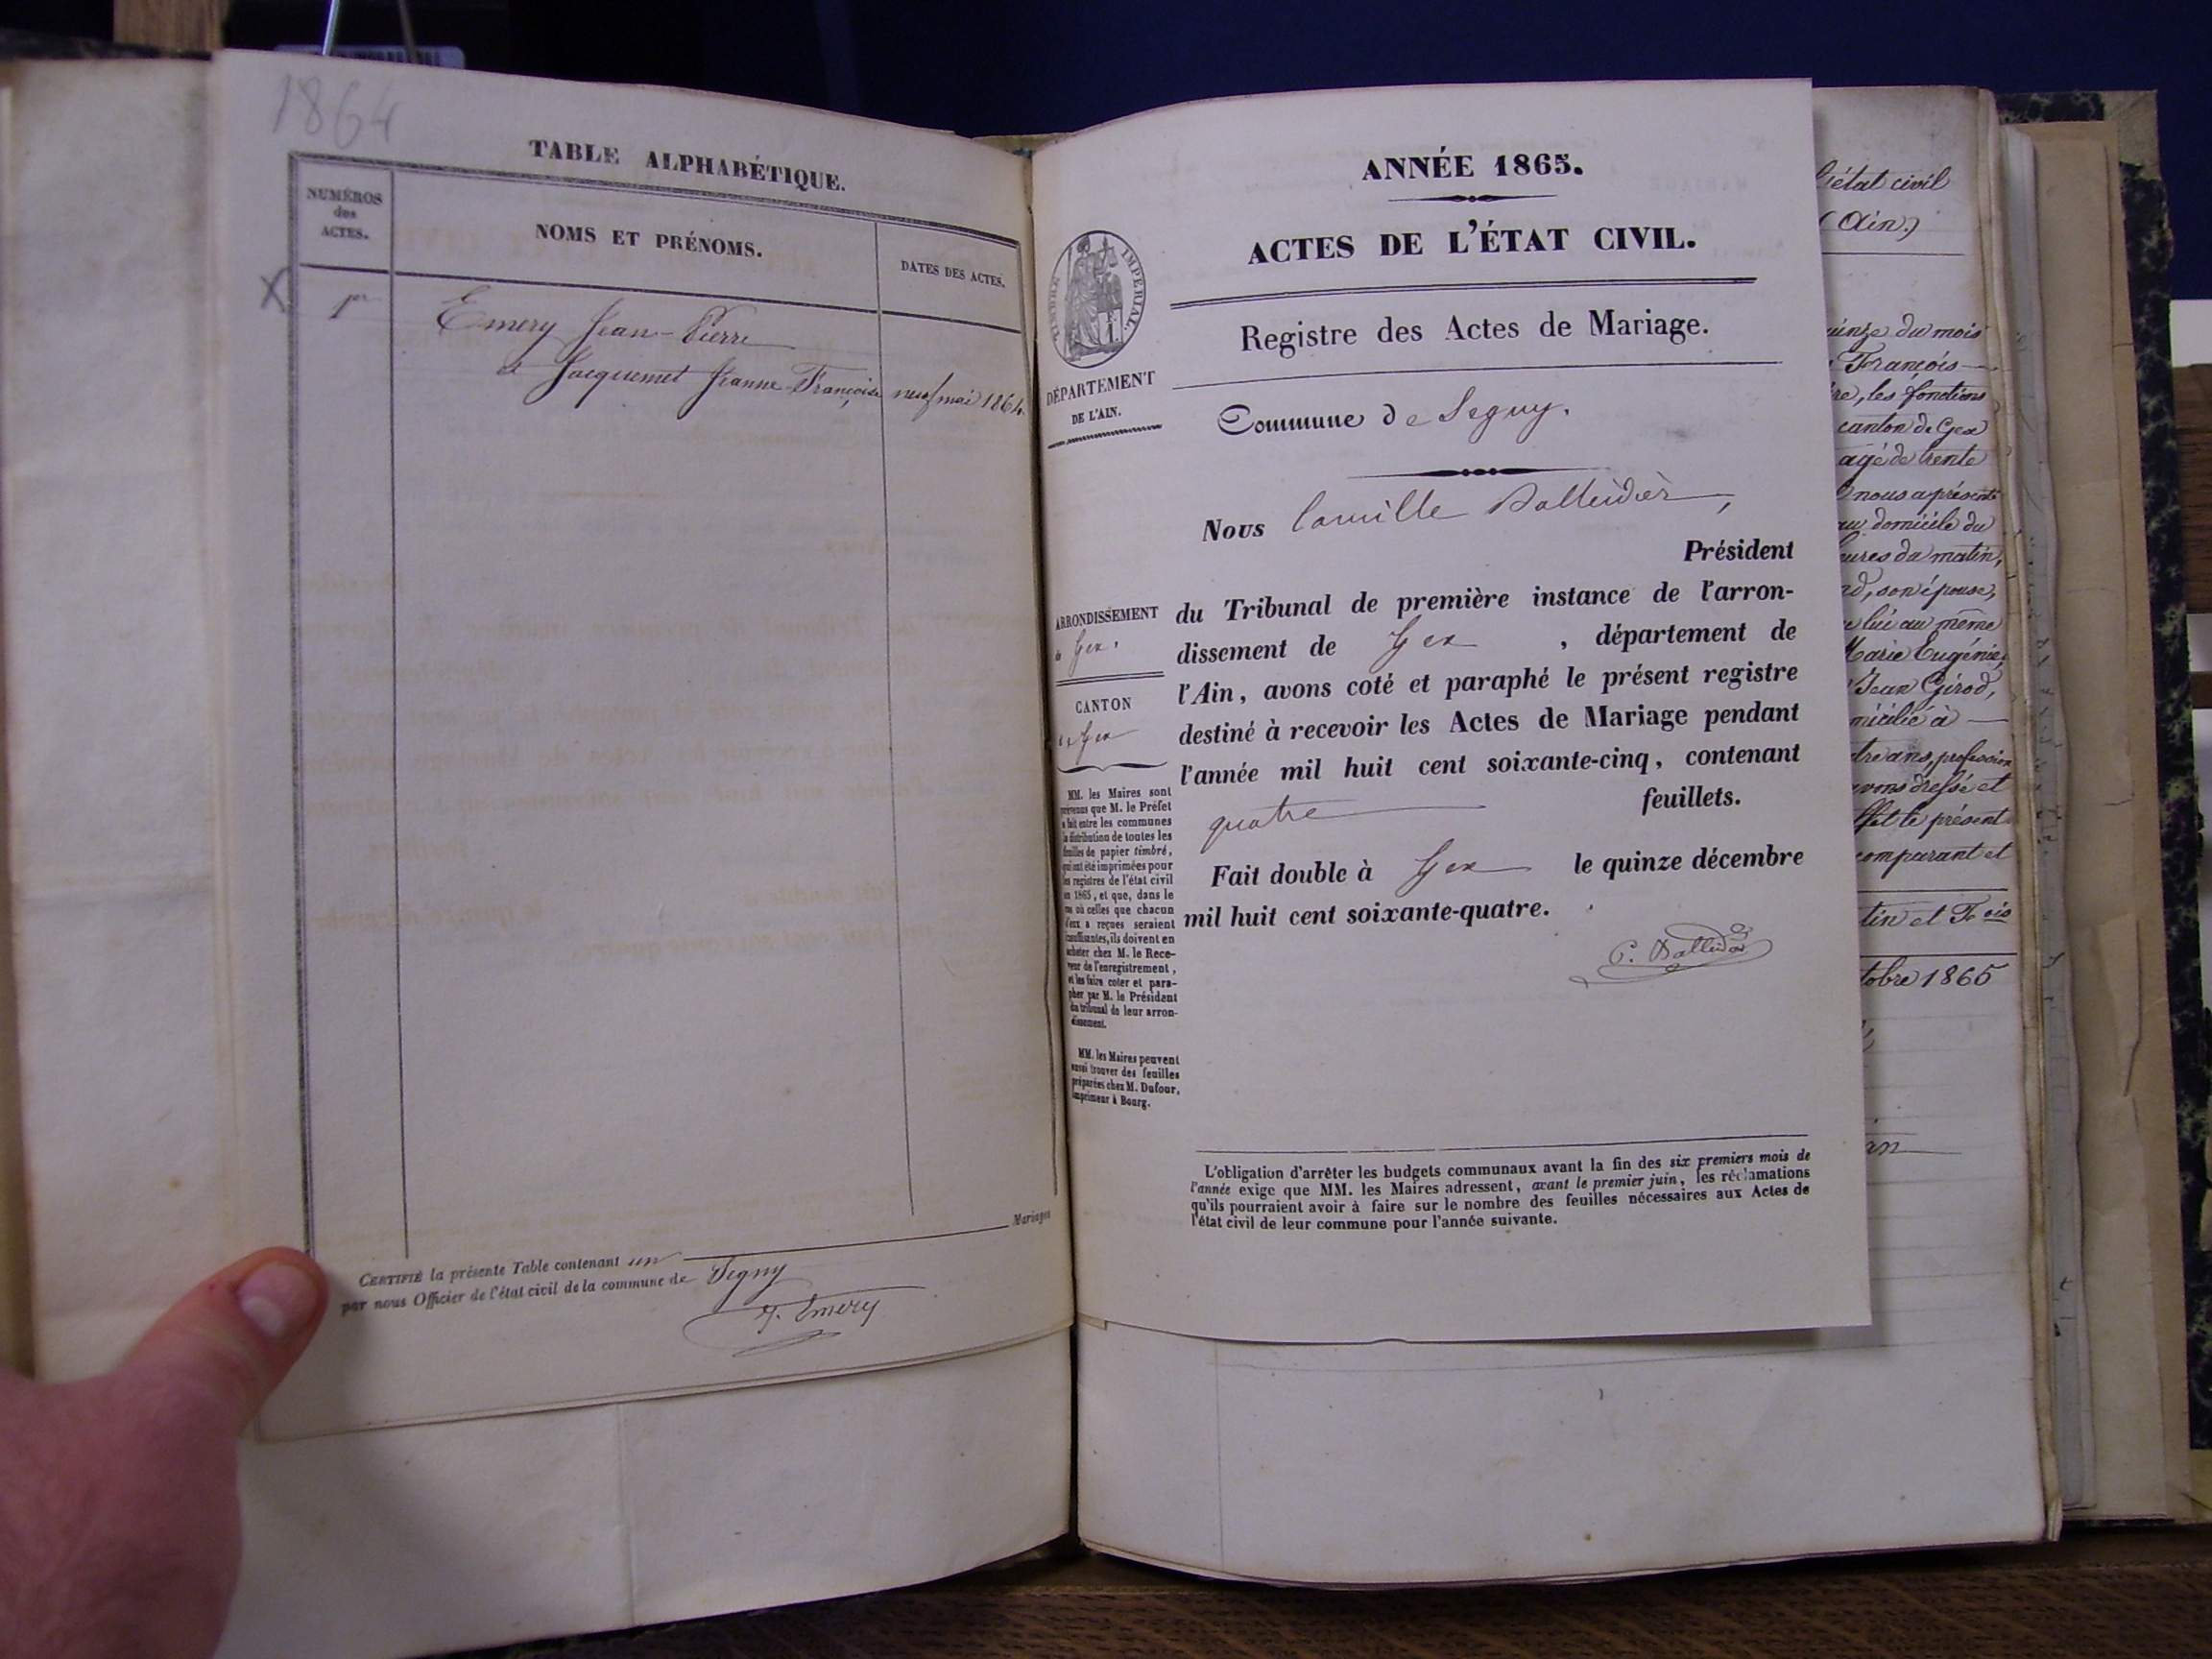 1864
TABLE ALPHABÉTIQUE.
NUMÉROS
des
ACTES.
NOMS ET PRÉNOMS.
DATES DES ACTES.
X
1er
Emery Jean-Pierre
& Jacquemet Jeanne-Françoise
neuf mai 1864
Mariages
CERTIFIÉ la présente Table contenant un
par nous Officier de l'état civil de la commune de Segny
J. Emery
ANNÉE 1865.
ACTES DE L'ÉTAT CIVIL.
TIMBRE IMPÉRIAL.
Registre des Actes de Mariage.
DÉPARTEMENT
DE L'AIN.
Commune de Segny.
Nous Camille Balleidier,
Président
ARRONDISSEMENT
de Gex.
CANTON
de Gex
du Tribunal de première instance de l'arron-
dissement de Gex, département de
l'Ain, avons coté et paraphé le présent registre
destiné à recevoir les Actes de Mariage pendant
l'année mil huit cent soixante-cinq, contenant
quatre feuillets.
Fait double à Gex le quinze décembre
mil huit cent soixante-quatre.
C. Balleidier
MM. les Maires sont
prévenus que M. le Préfet
a fait entre les communes
la distribution de toutes les
feuilles de papier timbré,
qui ont été imprimées pour
les registres de l'état civil
en 1865, et que, dans le
cas où celles que chacun
d'eux a reçues seraient
insuffisantes, ils doivent en
acheter chez M. le Rece-
veur de l'enregistrement,
et les faire coter et para-
pher par M. le Président
du tribunal de leur arron-
dissement.
MM. les Maires peuvent
aussi trouver des feuilles
préparées chez M. Dufour,
imprimeur à Bourg.
L'obligation d'arrêter les budgets communaux avant la fin des six premiers mois de
l'année exige que MM. les Maires adressent, avant le premier juin, les réclamations
qu'ils pourraient avoir à faire sur le nombre des feuilles nécessaires aux Actes de
l'état civil de leur commune pour l'année suivante.
l'état civil
(Ain)
quinze du mois
François
re, les fonctions
canton de Gex
agé de trente
nous a présenté
au domicile du
heures du matin,
d, son épouse,
lui au même
Marie Eugénie,
Jean Girod,
micilié à
tre ans, profession
avons dressé et
le présent
comparant et
tin et Fcois
tobre 1865